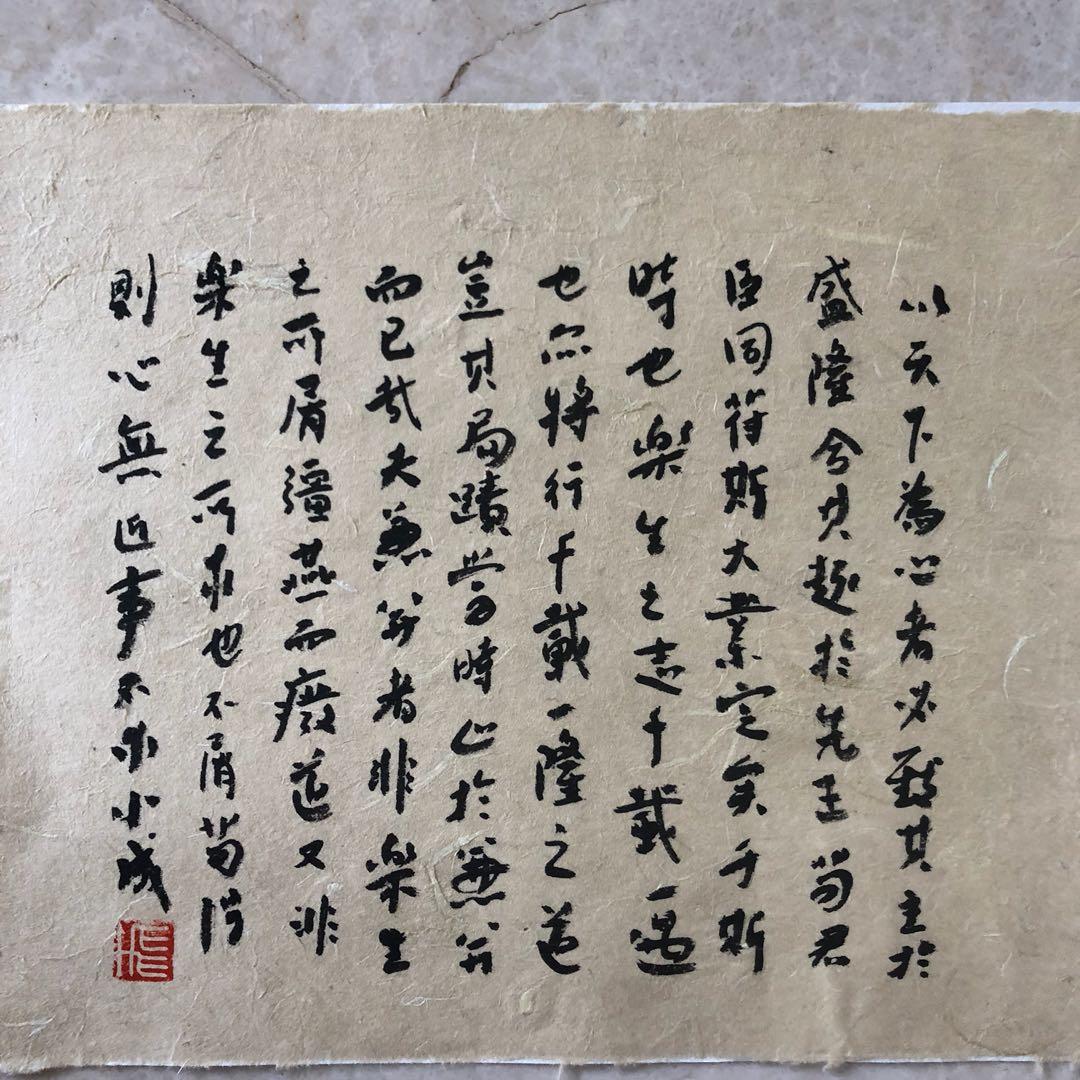 以天下為心者必致其主於
盛隆合其趣於先王苟君
臣同符斯大業定矣于斯
時也樂生之志千載一遇
也亦將行千載一隆之道
豈其局蹟當時止於兼并
而已哉夫兼并者非樂生
之所屑彊燕而廢道又非
樂生之所求也不屑苟得
則心無近事不求小成